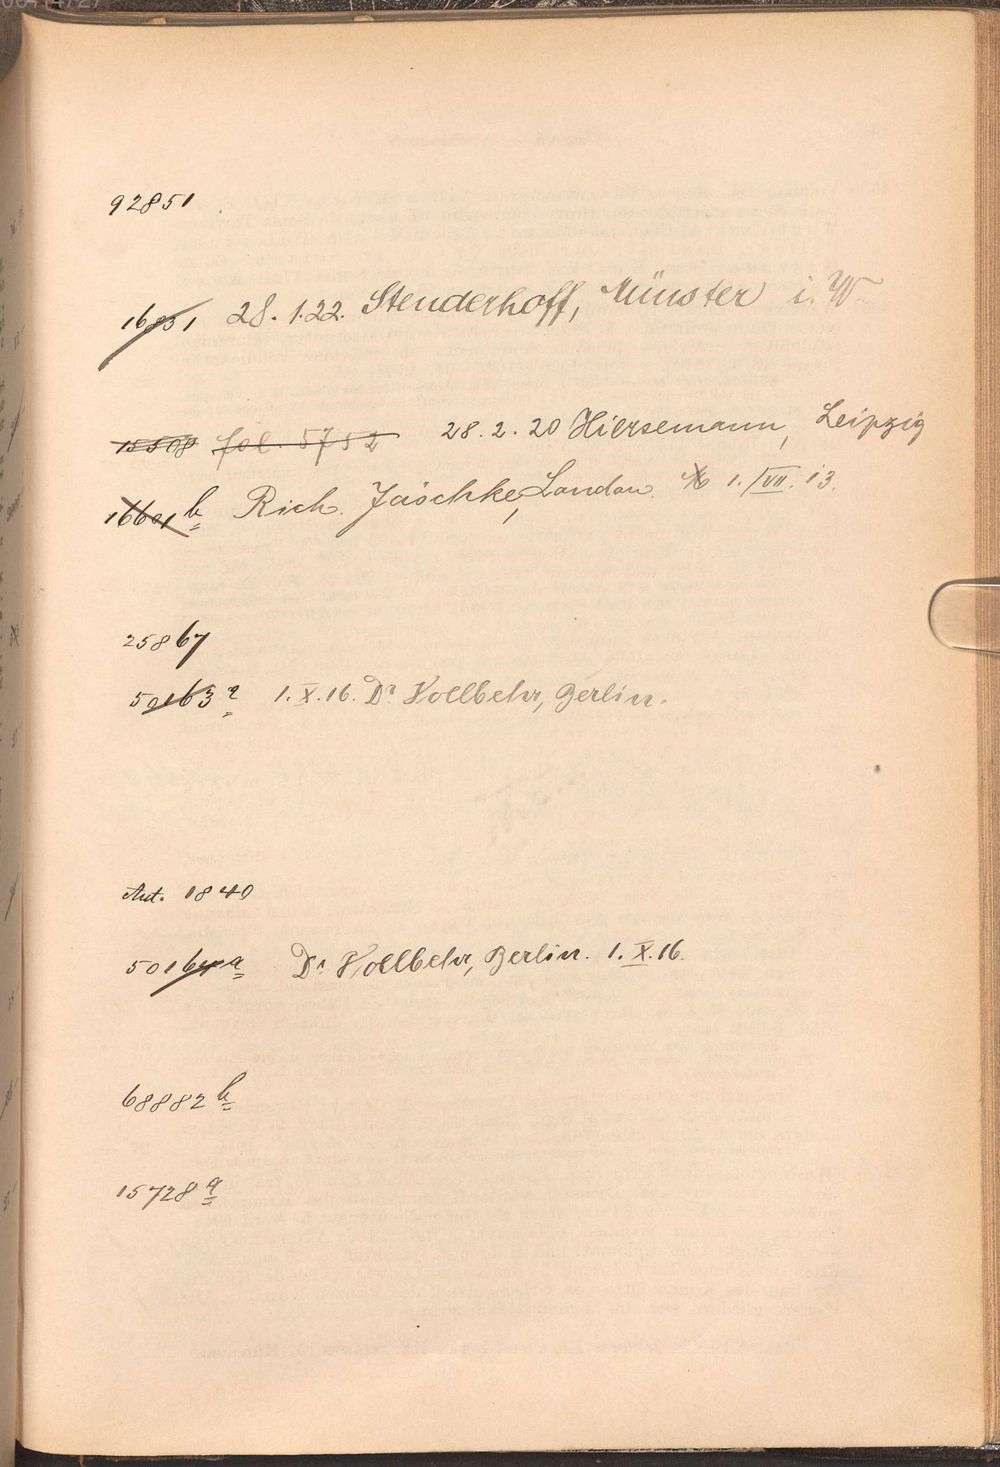 92851
16851 28. 1.22. Stenderhoff, Münster i. W.
15508 fol. 5752 28. 2. 20 Hiersemann, Leipzig
16601 b Rich. Jäschke, London. 1./VII. 13.
25867
50163 a 1. X. 16. Dr Vollbehr, Berlin.
Aut. 1840
50164 a Dr Vollbehr, Berlin. 1. X. 16.
68882 b
15728 a